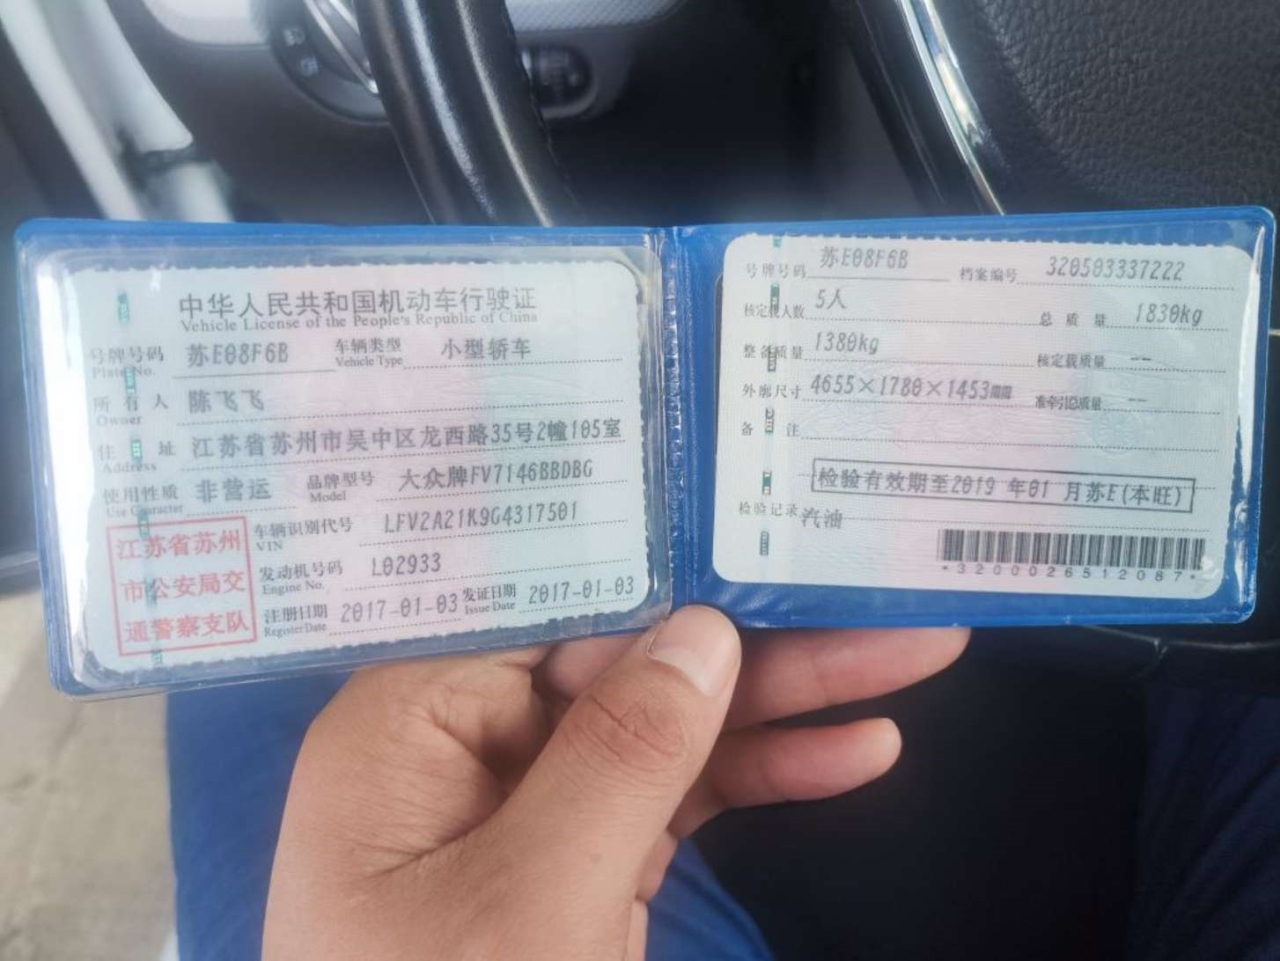 中华人民共和国机动车行驶证
Vehicle License of the People's Republic of China
号牌号码 苏E08F6B 车辆类型 小型轿车
Plate No. Vehicle Type
所有人 陈飞飞
Owner
住址 江苏省苏州市吴中区龙西路35号2幢105室
Address
使用性质 非营运 品牌型号 大众牌FV7146BBDBG
Use Character Model
江苏省苏州
市公安局交
通警察支队
车辆识别代号 LFV2A21K9G4317501
VIN
发动机号码 L02933
Engine No.
注册日期 2017-01-03 发证日期 2017-01-03
Register Date Issue Date
号牌号码 苏E08F6B 档案编号 320503337222
核定载人数 5人 总质量 1830kg
整备质量 1380kg 核定载质量 --
外廓尺寸 4655×1780×1453mm 准牵引总质量 --
备注
检验有效期至2019年01月苏E(本旺)
检验记录 汽油
*3200026512087*